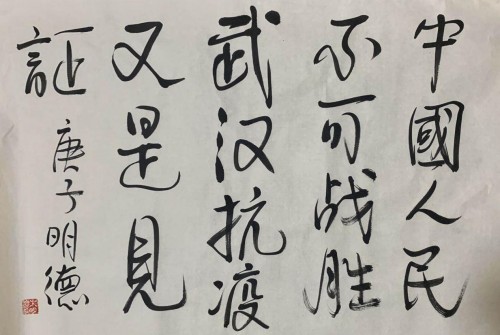 中國人民
不可战胜
武汉抗疫
又是見
証
庚子明德